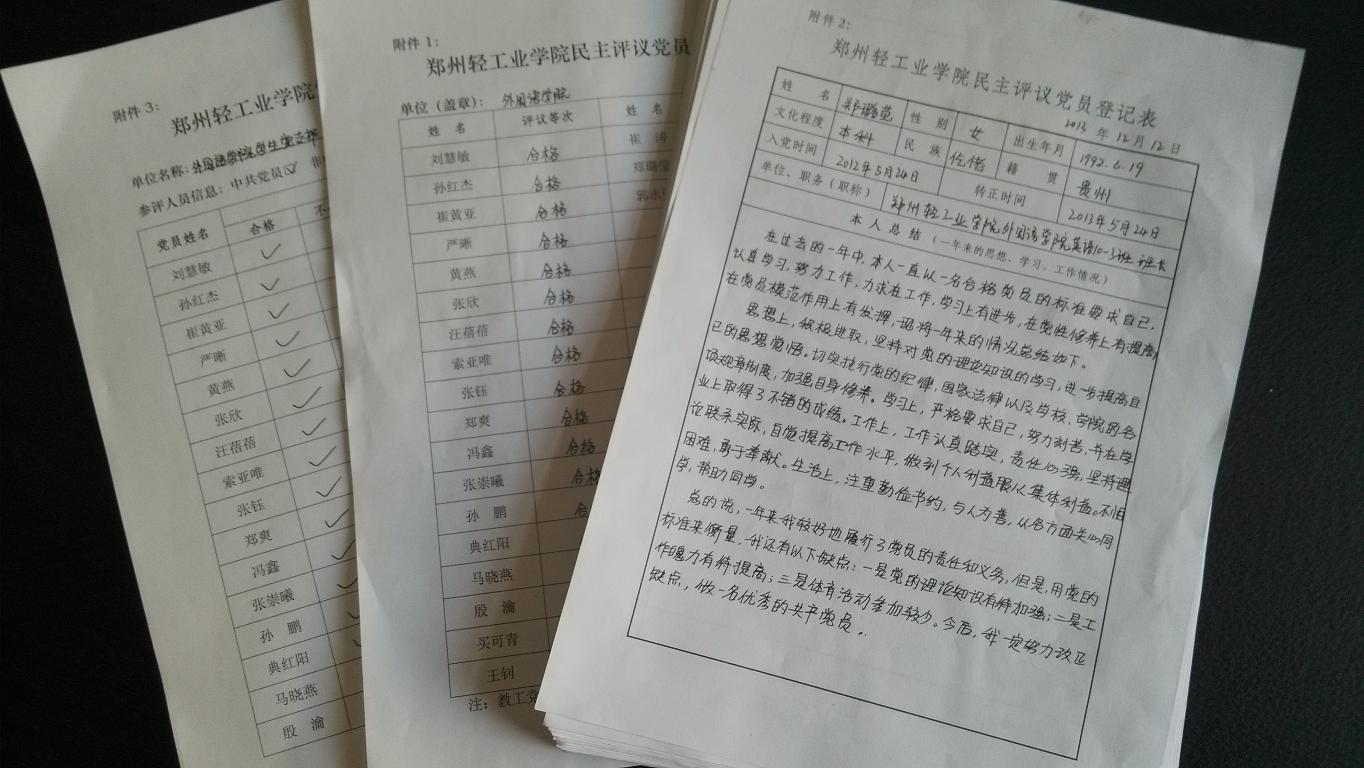 附件3：
郑州轻工业学院
单位名称：外国语学院学生党支部
参评人员信息：中共党员☑
党员姓名 合格 不
刘慧敏 ✓
孙红杰 ✓
崔黄亚 ✓
严晰 ✓
黄燕 ✓
张欣 ✓
汪蓓蓓 ✓
索亚唯 ✓
张钰 ✓
郑爽 ✓
冯鑫 ✓
张崇曦 ✓
孙 鹏 ✓
典红阳 ✓
马晓燕
殷 瀹
附件1：
郑州轻工业学院民主评议党员
单位（盖章）： 外国语学院
姓 名 评议等次 姓 名
刘慧敏 合格 崔 涛
孙红杰 合格 郑璐莹
崔黄亚 合格 郭永
严晰 合格
黄燕 合格
张欣 合格
汪蓓蓓 合格
索亚唯 合格
张钰 合格
郑爽 合格
冯鑫 合格
张崇曦 合格
孙 鹏 合
典红阳
马晓燕
殷 瀹
买可青
王钊
注：教工党
附件2：
郑州轻工业学院民主评议党员登记表
2013 年 12 月 12 日
姓 名 郑璐莹 性 别 女 出生年月 1992.6.19
文化程度 本科 民 族 仡佬 籍 贯 贵州
入党时间 2012年5月24日 转正时间 2013年5月24日
单位、职务（职称） 郑州轻工业学院外国语学院英语10-3班 班长
本 人 总 结（一年来的思想、学习、工作情况）
在过去的一年中，本人一直以一名合格党员的标准要求自己，
认真学习，努力工作，力求在工作，学习上有进步，在党性修养上有提高，
在党员模范作用上有发挥，现将一年来的情况总结如下。
思想上，积极进取，坚持对党的理论知识的学习，进一步提高自
己的思想觉悟。切实执行党的纪律，国家法律以及学校、学院的各
项规章制度，加强自身修养。学习上，严格要求自己，努力刻苦，并在学
业上取得了不错的成绩。工作上，工作认真踏实，责任心强，坚持理
论联系实际，自觉提高工作水平，做到个人利益服从集体利益。不怕
困难，勇于奉献。生活上，注重勤俭节约，与人为善，从各方面关心同
学，帮助同学。
总的说，一年来我较好地履行了党员的责任和义务，但是，用党的
标准来衡量，我还有以下缺点：一是党的理论知识有待加强；二是工
作魄力有待提高；三是体育活动参加较少。今后，我一定努力改正
缺点，做一名优秀的共产党员。